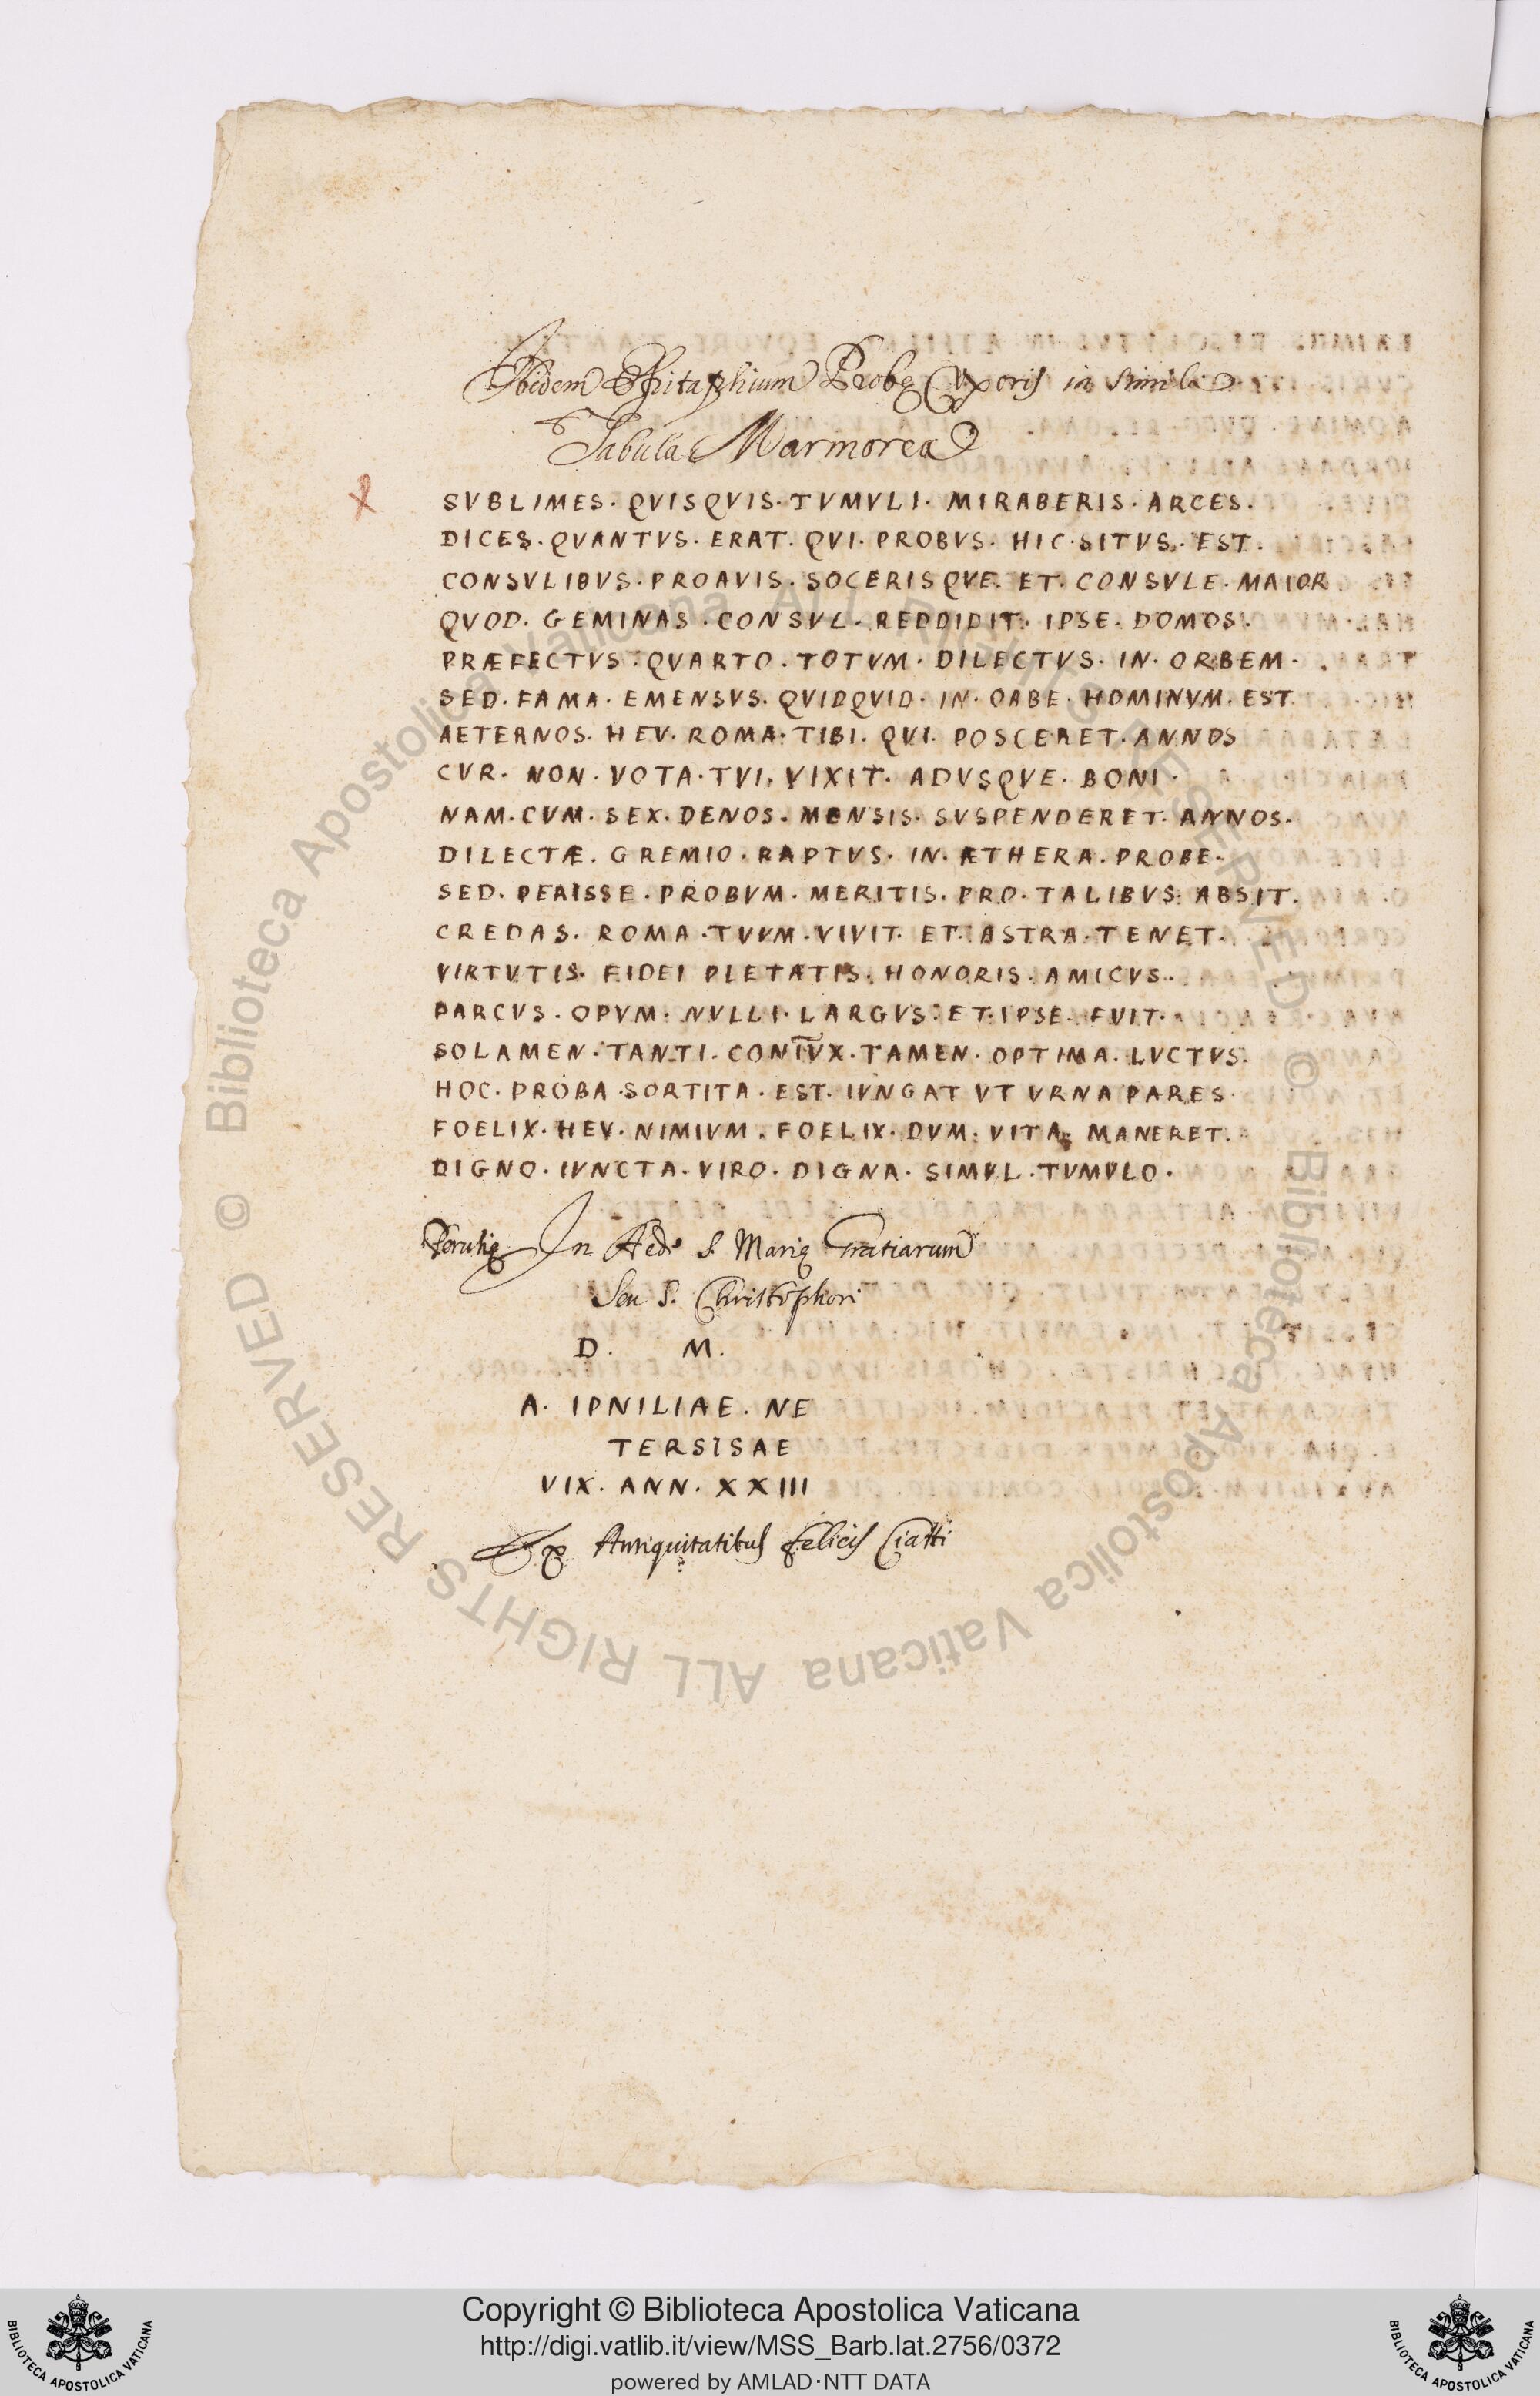 Ibidem Epitaphium Probę Uxoris in simili
Tabula Marmorea
SVBLIMES. QVISQVIS. TVMVLI. MIRABERIS. ARCES.
DICES. QVANTVS. ERAT. QVI. PROBVS. HIC. SITVS. EST.
CONSVLIBVS. PROAVIS. SOCERISQVE. ET. CONSVLE. MAIOR
QVOD. GEMINAS. CONSVL. REDDIDIT. IPSE. DOMOS.
PRÆFECTVS. QVARTO. TOTVM. DILECTVS. IN. ORBEM.
SED. FAMA. EMENSVS. QVIDQVID. IN. OABE. HOMINVM. EST.
AETERNOS. HEV. ROMA. TIBI. QVI. POSCERET. ANNOS
CVR. NON. VOTA. TVI. VIXIT. ADVSQVE. BONI.
NAM. CVM. SEX. DENOS. MENSIS. SVSPENDERET. ANNOS.
DILECTÆ. GREMIO. RAPTVS. IN. ÆTHERA. PROBE.
SED. PERISSE. PROBVM. MERITIS. PRO. TALIBVS. ABSIT.
CREDAS. ROMA. TVVM. VIVIT. ET. ASTRA. TENET.
VIRTVTIS. FIDEI PLETATIS. HONORIS. AMICVS.
PARCVS. OPVM. NVLLI. LARGVS. ET. IPSE. FVIT.
SOLAMEN. TANTI. CONIVX. TAMEN. OPTIMA. LVCTVS.
HOC. PROBA. SORTITA. EST. IVNGAT VT VRNA PARES.
FOELIX. HEV. NIMIVM. FOELIX. DVM. VITA. MANERET.
DIGNO. IVNCTA. VIRO. DIGNA. SIMVL. TVMVLO.
Perusię In Aede S. Marię Gratiarum
Seu S. Christophori
D. M.
A. IPNILIAE. NE
TERSISAE
VIX. ANN. XXIII
Ex Antiquitatibus Felicis Ciatti
© Biblioteca Apostolica Vaticana ALL RIGHTS RESERVED © Biblioteca Apostolica Vaticana ALL RIGHTS RESERVED
BIBLIOTECA APOSTOLICA VATICANA
Copyright © Biblioteca Apostolica Vaticana
http://digi.vatlib.it/view/MSS_Barb.lat.2756/0372
powered by AMLAD·NTT DATA
BIBLIOTECA APOSTOLICA VATICANA